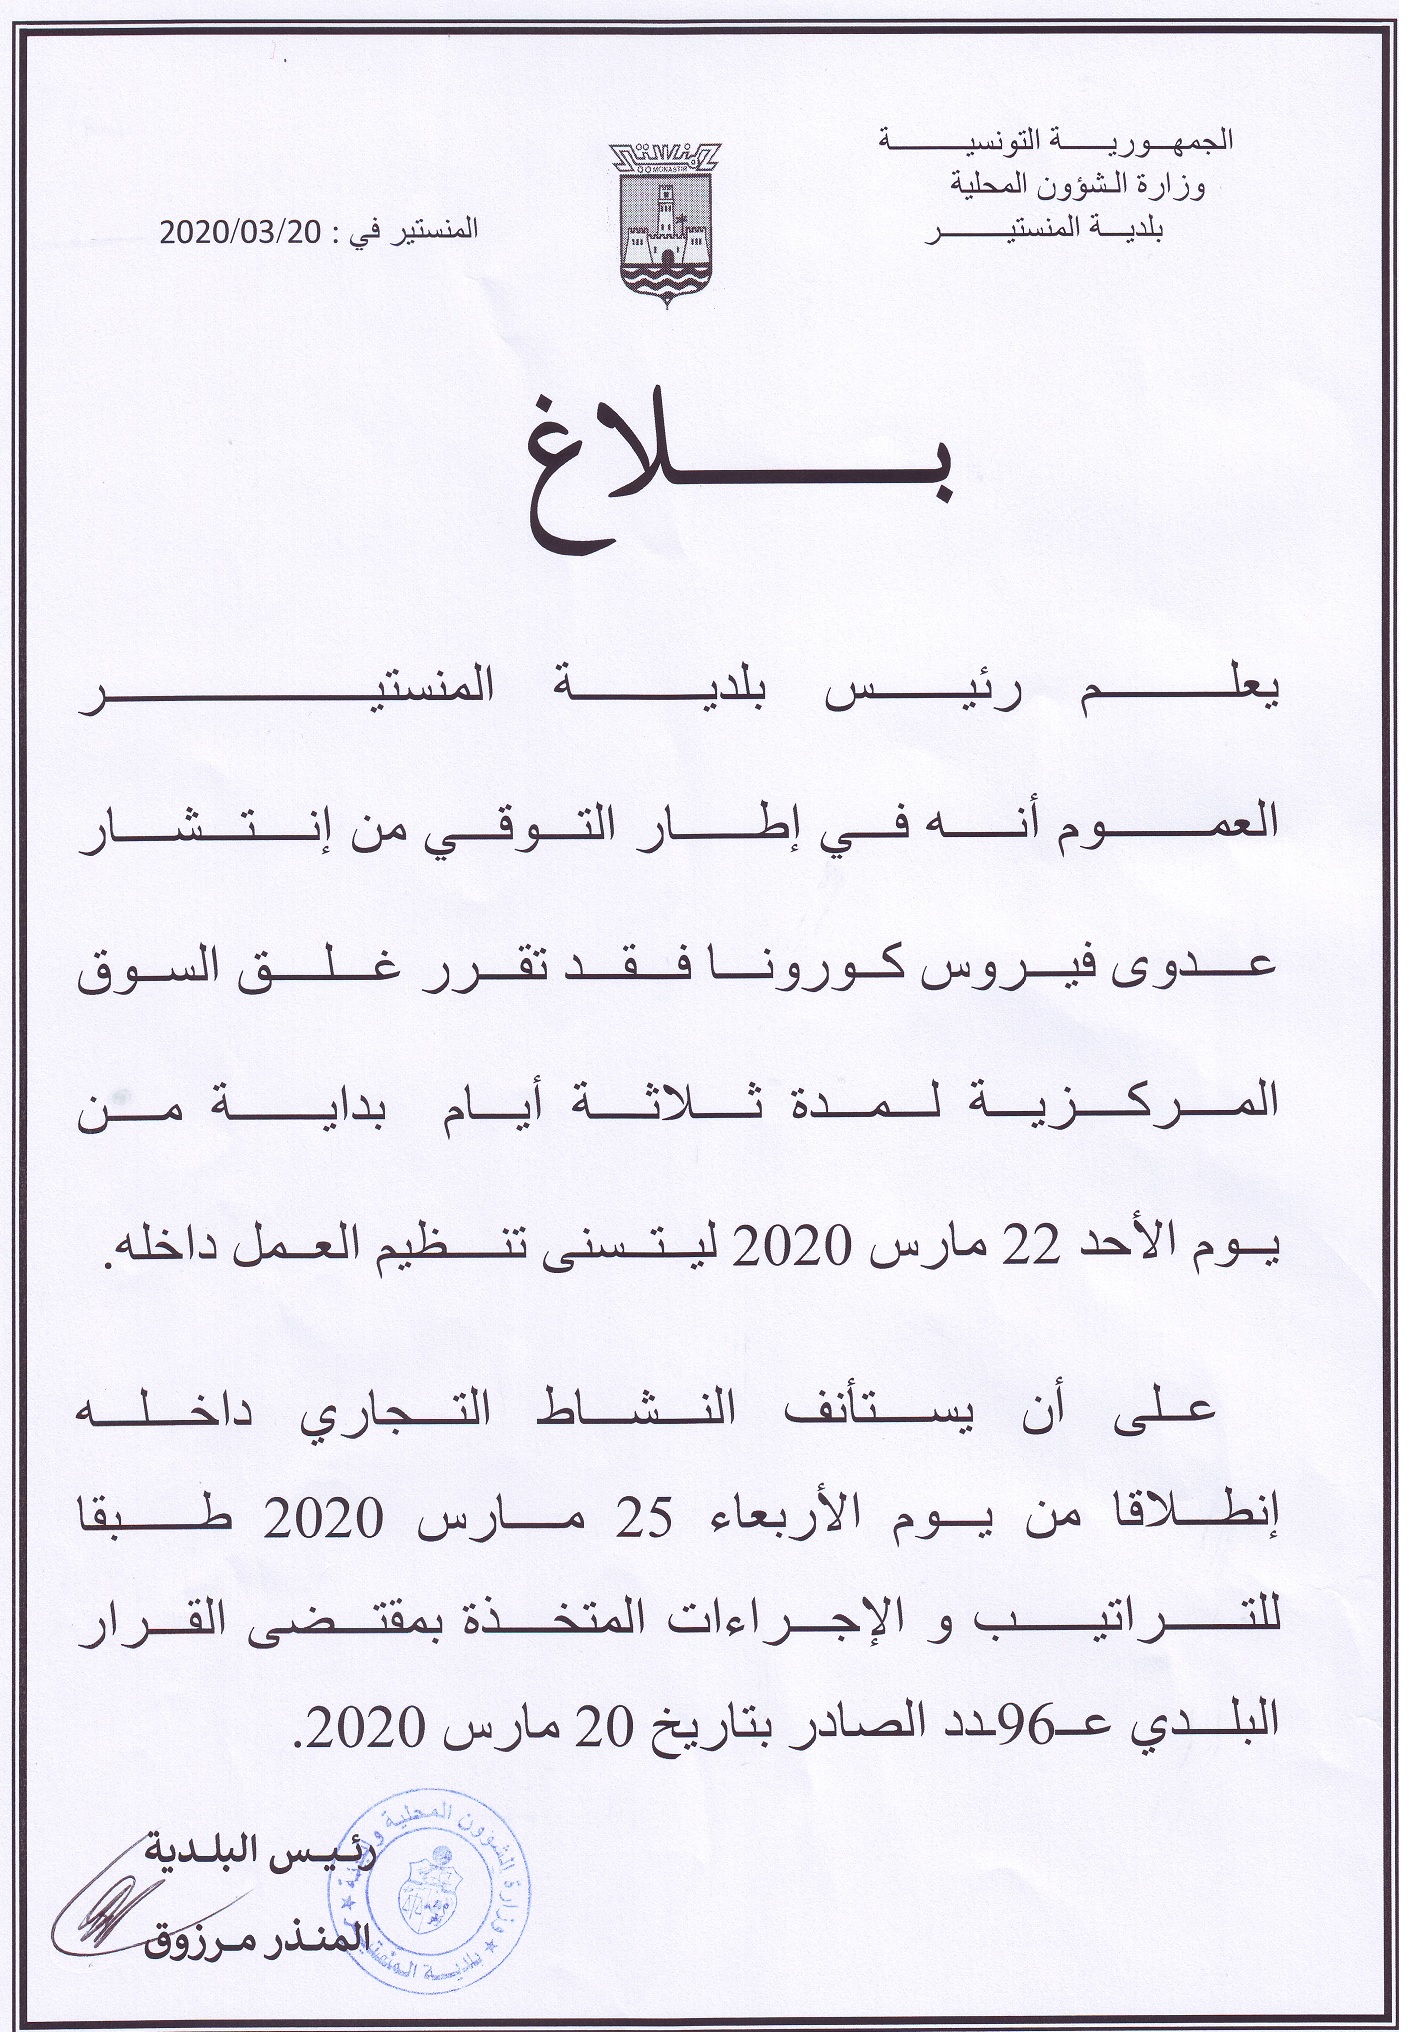 الجمهورية التونسية
وزارة الشؤون المحلية
بلدية المنستير
المنستير
MONASTIR
المنستير في : 2020/03/20
بلاغ
يعلم رئيس بلدية المنستير
العموم أنه في إطار التوقي من إنتشار
عدوى فيروس كورونا فقد تقرر غلق السوق
المركزية لمدة ثلاثة أيام بداية من
يوم الأحد 22 مارس 2020 ليتسنى تنظيم العمل داخله.
على أن يستأنف النشاط التجاري داخله
إنطلاقا من يوم الأربعاء 25 مارس 2020 طبقا
للتراتيب و الإجراءات المتخذة بمقتضى القرار
البلدي عـ96ـدد الصادر بتاريخ 20 مارس 2020.
رئيس البلدية
المنذر مرزوق
وزارة الشؤون المحلية
بلدية المنستير